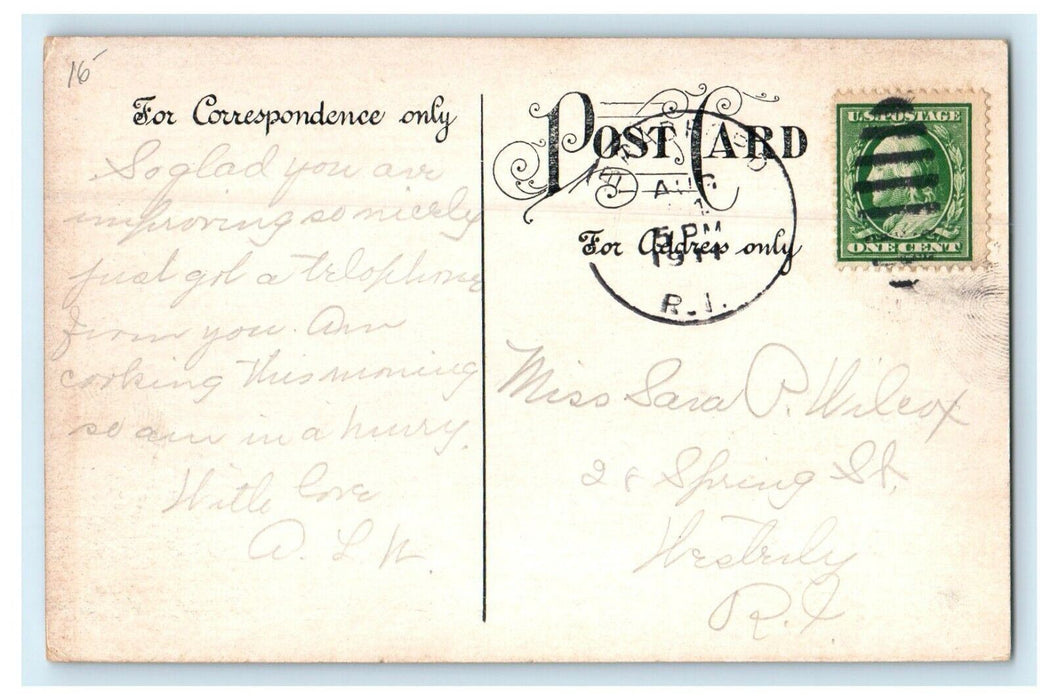 16
For Correspondence only
So glad you are
improving so nicely
just got a telephone
from you. Am
cooking this morning
so am in a hurry.
With love
A. L. W.
POST CARD
For Address only
AUG
1
5 PM
1911
R.I.
U.S. POSTAGE
ONE CENT
Miss Sara P. Wilcox
28 Spring St.
Westerly
R.I